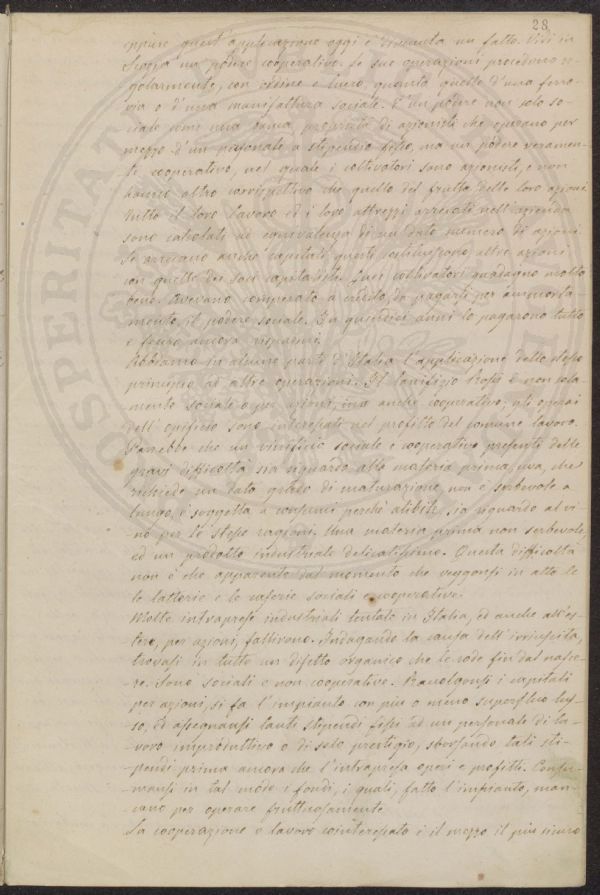 28
eppure quest'applicazione oggi è divenuta un fatto. Vidi in
Scozia un podere cooperativo. Le sue operazioni procedono re-
golarmente, con ordine e lucro, quanto quelle d'una ferro-
via o d'una manifattura sociale. È un podere non solo so-
ciale come una banca, proprietà di azionisti che operano per
mezzo d'un personale a stipendio fisso, ma un podere veramen-
te cooperativo, nel quale i coltivatori sono azionisti, e non
hanno altro corrispettivo che quello del frutto delle loro azioni.
Tutto il loro lavoro ed i loro attrezzi arrecati nell'azienda
sono calcolati ad equivalenza di un dato numero di azioni.
Se arrecano anche capitali questi costituiscono altre azioni
con quelle dei soci capitalisti. Quei coltivatori guadagno molto
bene. Avevano comperato a credito, da pagarsi per ammorta-
mento, il podere sociale. In quindici anni lo pagarono tutto
e fecero ancora risparmi.
Abbiamo in alcune parti d'Italia l'applicazione dello stesso
principio ad altre operazioni. Il lanifizio Rossi è non sola-
mento sociale o per azioni, ma anche cooperativo; gli operai
dell'opificio sono interessati nel profitto del comune lavoro.
Parrebbe che un vinificio sociale e cooperativo presenti delle
gravi difficoltà sia riguardo alla materia prima, uva, che
richiede un dato grado di maturazione, non è serbevole a
lungo, è soggetta a consumi perchè cibile, sia riguardo al vi-
no per le stesse ragioni. Una materia prima non serbevole,
ed un prodotto industriale delicatissimo. Questa difficoltà
non è che apparente dal momento che veggonsi in atto le
le latterie e le caserie sociali e cooperative.
Molte intraprese industriali tentate in Italia, ed anche all'es-
tero, per azioni, fallirono. Indagando la causa dell'irriuscita,
trovasi in tutte un difetto organico che le rode fin dal nasce-
re. Sono sociali e non cooperative. Raccolgonsi i capitali
per azioni, si fa l'impianto con più o meno superfluo lus-
so, ed assegnansi tanti stipendi fissi ad un personale di la-
voro improduttivo o di solo prestigio, sborsando tali sti-
pendi prima ancora che l'intrapresa operi e profitti. Consu-
mansi in tal modo i fondi, i quali, fatto l'impianto, man-
cano per operare fruttuosamente.
La cooperazione o lavoro cointeressato è il mezzo il più sicuro
PROSPERITATI